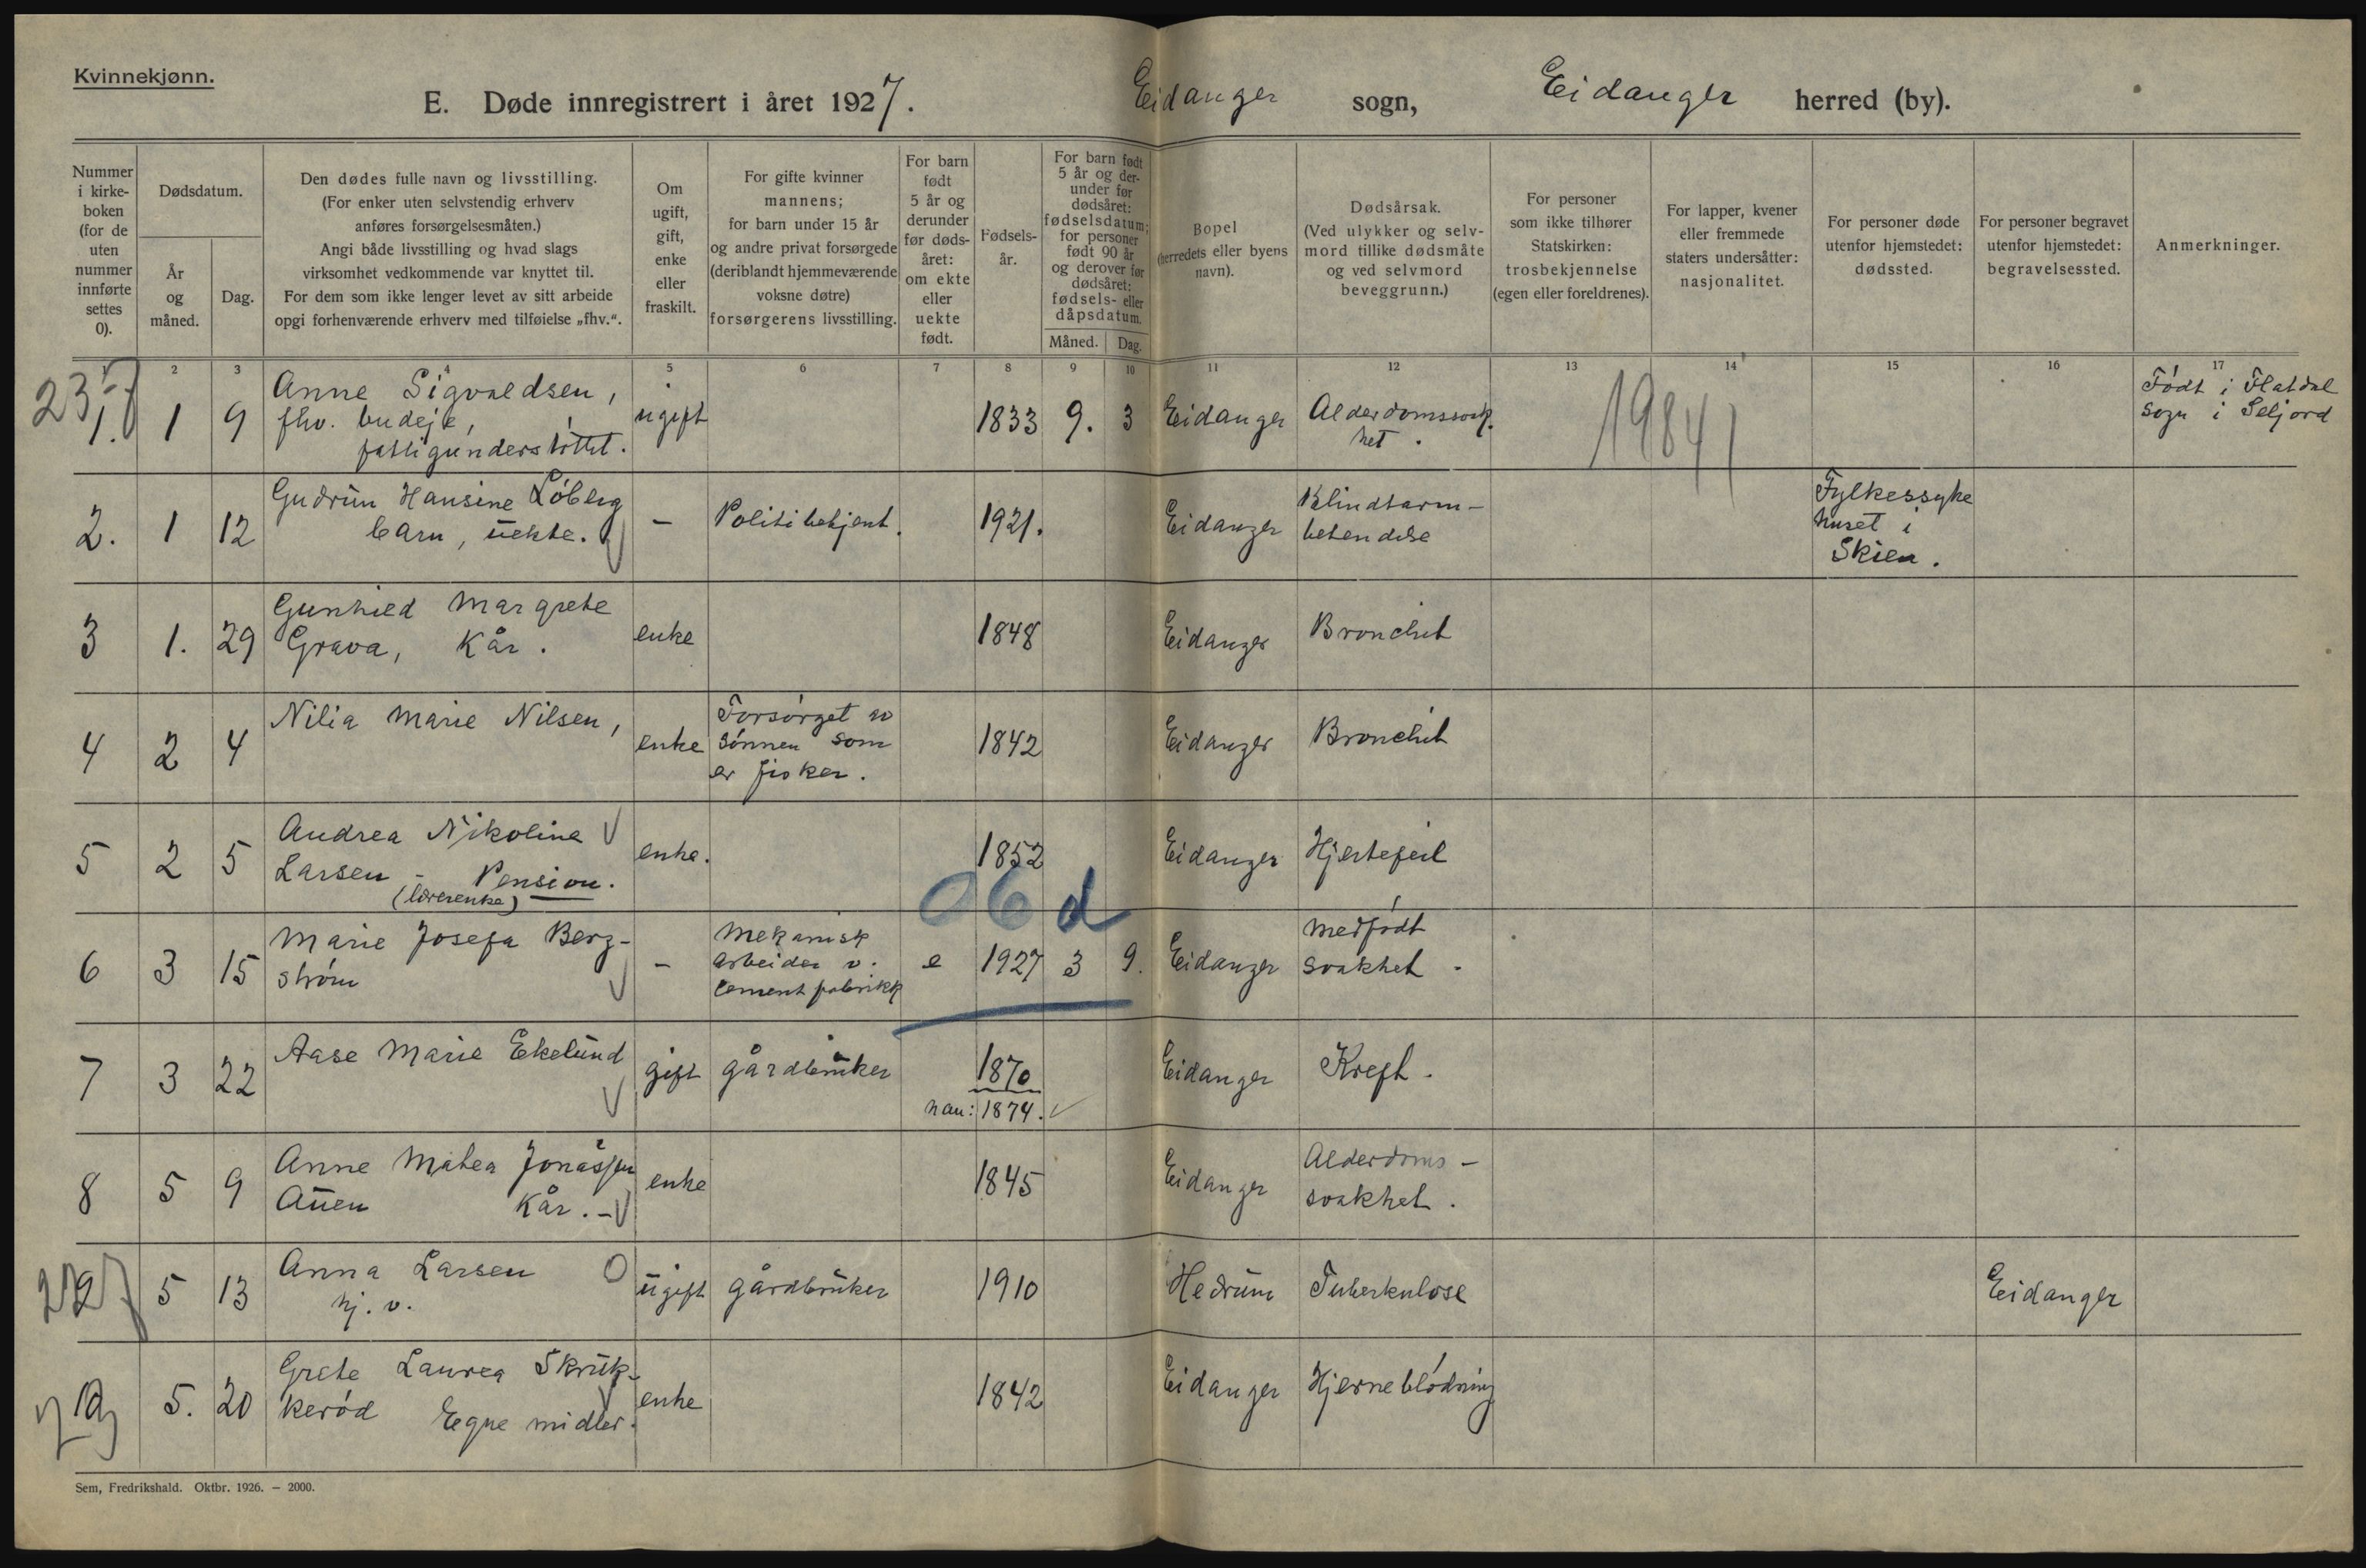 Kvinnekjønn.
E. Døde innregistrert i året 1927. Eidanger sogn, Eidanger herred (by).
Nummer i kirkeboken (for de uten nummer innførte settes 0).
Dødsdatum.
År og måned.
Dag.
Den dødes fulle navn og livsstilling.
(For enker uten selvstendig erhverv
anføres forsørgelsesmåten.)
Angi både livsstilling og hvad slags
virksomhet vedkommende var knyttet til.
For dem som ikke lenger levet av sitt arbeide
opgi forhenværende erhverv med tilføielse „fhv.“.
Om ugift, gift, enke eller fraskilt.
For gifte kvinner
mannens;
for barn under 15 år
og andre privat forsørgede
(deriblandt hjemmeværende
voksne døtre)
forsørgerens livsstilling.
For barn født 5 år og derunder før dødsåret: om ekte eller uekte født.
Fødselsår.
For barn født 5 år og derunder før dødsåret: fødselsdatum; for personer født 90 år og derover før dødsåret: fødsels- eller dåpsdatum.
Måned. Dag.
Bopel
(herredets eller byens
navn).
Dødsårsak.
(Ved ulykker og selv-
mord tillike dødsmåte
og ved selvmord
beveggrunn.)
For personer
som ikke tilhører
Statskirken:
trosbekjennelse
(egen eller foreldrenes).
For lapper, kvener
eller fremmede
staters undersåtter:
nasjonalitet.
For personer døde
utenfor hjemstedet:
dødssted.
For personer begravet
utenfor hjemstedet:
begravelsessted.
Anmerkninger.
2 3 4 5 6 7 8 9 10 11 12 13 14 15 16 17
1. 1 9 Anne Sigvaldsen,
fhv. budeje,
fattigunderstøttet.
ugift 1833 9. 3 Eidanger Alderdomssvak-
het.
19841
Født i Flatdal
sogn i Seljord
2. 1 12 Gudrun Hansine Løberg
barn, uekte.
– Politibetjent. 1921. Eidanger Blindtarm-
betendelse
Fylkessyke
huset i
Skien.
3 1. 29 Gunhild Margrete
Grava, Kår.
enke 1848 Eidanger Bronchit
4 2 4 Nilia Marie Nilsen,
enke Forsørget av
sønnen som
er fisker.
1842 Eidanger Bronchit
5 2 5 Andrea Nikoline
Larsen - Pension.
(lærerenke)
enke. 1852 Eidanger Hjertefeil
06 d
6 3 15 Marie Josefa Berg-
strøm
– Mekanisk
arbeider v.
cementfabrikk
e 1927 3 9. Eidanger Medfødt
svakhet.
7 3 22 Aase Marie Ekelund
gift gårdbruker 1870
nau: 1874.
Eidanger Kreft.
8 5 9 Anne Mathea Jonassen
Auen Kår. -
enke 1845 Eidanger Alderdoms-
svakhet.
9 5 13 Anna Larsen
hj. v.
ugift gårdbruker 1910 Hedrum Tuberkulose Eidanger
10 5. 20 Grete Laurea Skruk-
kerød Egne midler.
enke 1842 Eidanger Hjerneblødning
Sem, Fredrikshald. Oktbr. 1926. – 2000.